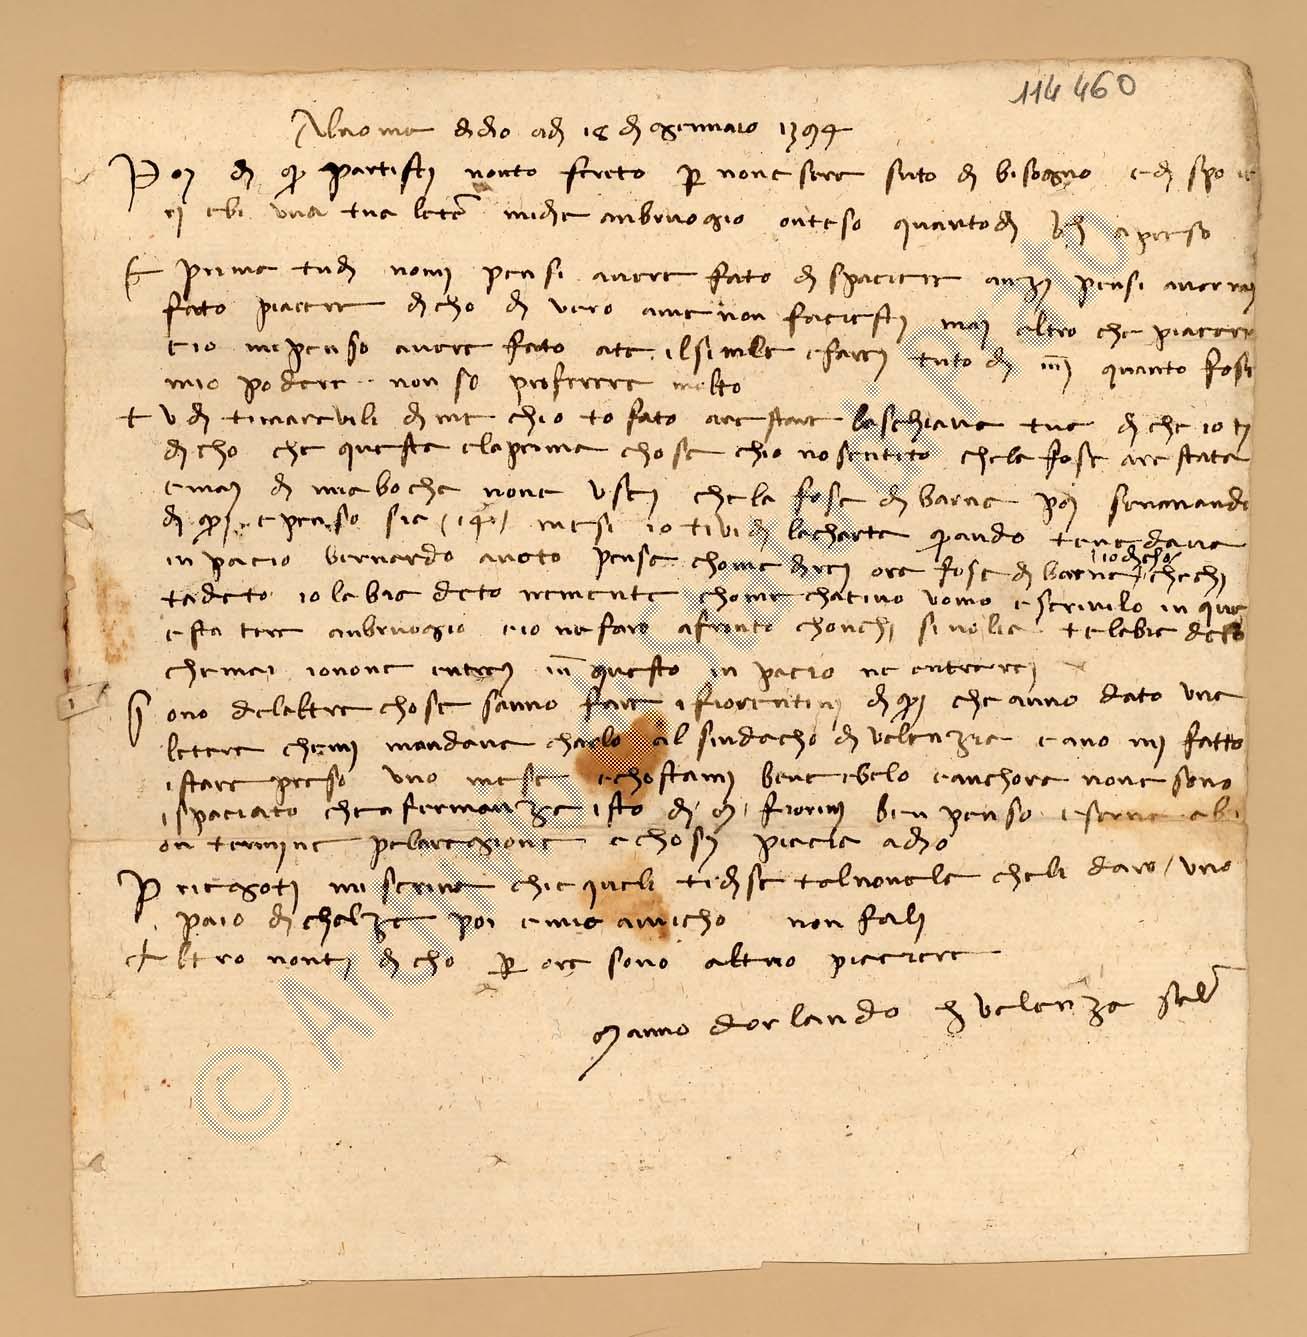 114460
Al nome di dio adì 18 di gennaio 1394
Poi di qui partisti nonto scrito per none sere suto di bisogno e di spo
ri ebi una tua letera mi die anbruogio onteso quanto di
prima tu di nomi pensi avere fato di spaciere anzi pensi avermi
fato piacere dicho di vero ame non faciesti mai altro che piacere
e io mi penso avere fato ate il simile e farei tuto di quanto fose
mio podere non so proferere molto
tu di ti maravili di me chio to fato arestare laschiava tua di che io ti
dicho che questa e laprima chosa chio no sentito chela fose arestata
e mai di mia bocha none uscì chela fose di barna poi
di qui e penso sia mesi io ti vidi lacharta quando tene dava
in pacio bernardo avuto pensa chome direi ora fose di barna io dicho chechi
tadeto io labia deto nemente chome chativo uomo e scrivilo in que
esta tera anbruogio e io ne faro afronto chonchi si volia telabia deto
chemai ionone entrai in questo in pacio ne entrarei
Sono delaltre chose sanno fare i fiorentini di qui che anno dato una
letera chemi mandava charlo al sindacho di valenza e ano mi fatto
istare preso uno mese e chostami bene e belo e anchora none sono
ispaciato che afermanza isto di fiorini ben penso eserne abi
on termine pelaragione e chosì piacia adio
Priegoti mi scriva chie queli tidise talnovela cheli daro uno
paio di chalze poi e mio amicho non fali
Altro nonti dicho per ora sono altuo piaciere
Manno dorlando in valenza salute
© Archivio di Stato di Prato